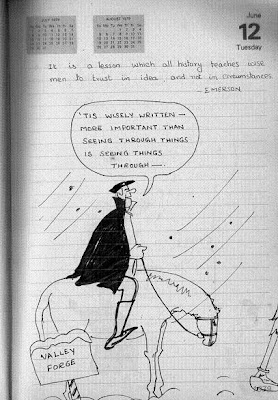 JULY 1979
AUGUST 1979
June
12
Tuesday
It is a lesson which all history teaches wise
men to trust in idea and not in circumstances.
— EMERSON.
'TIS WISELY WRITTEN —
MORE IMPORTANT THAN
SEEING THROUGH THINGS
IS SEEING THINGS
THROUGH —.
NALLEY
FORGE